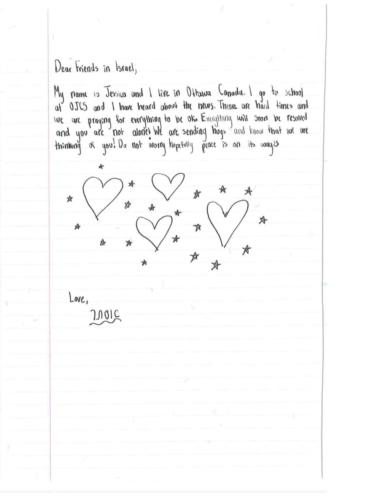 Dear Friends in Israel,
My name is Jessica and I live in Ottawa Canada. I go to school
at OJCS and I have heard about the news. These are hard times and
we are praying for everything to be ok. Everything will soon be resolved
and you are not alone! We are sending hugs and know that we are
thinking of you! Do not worry hopefully peace is on its way
Love,